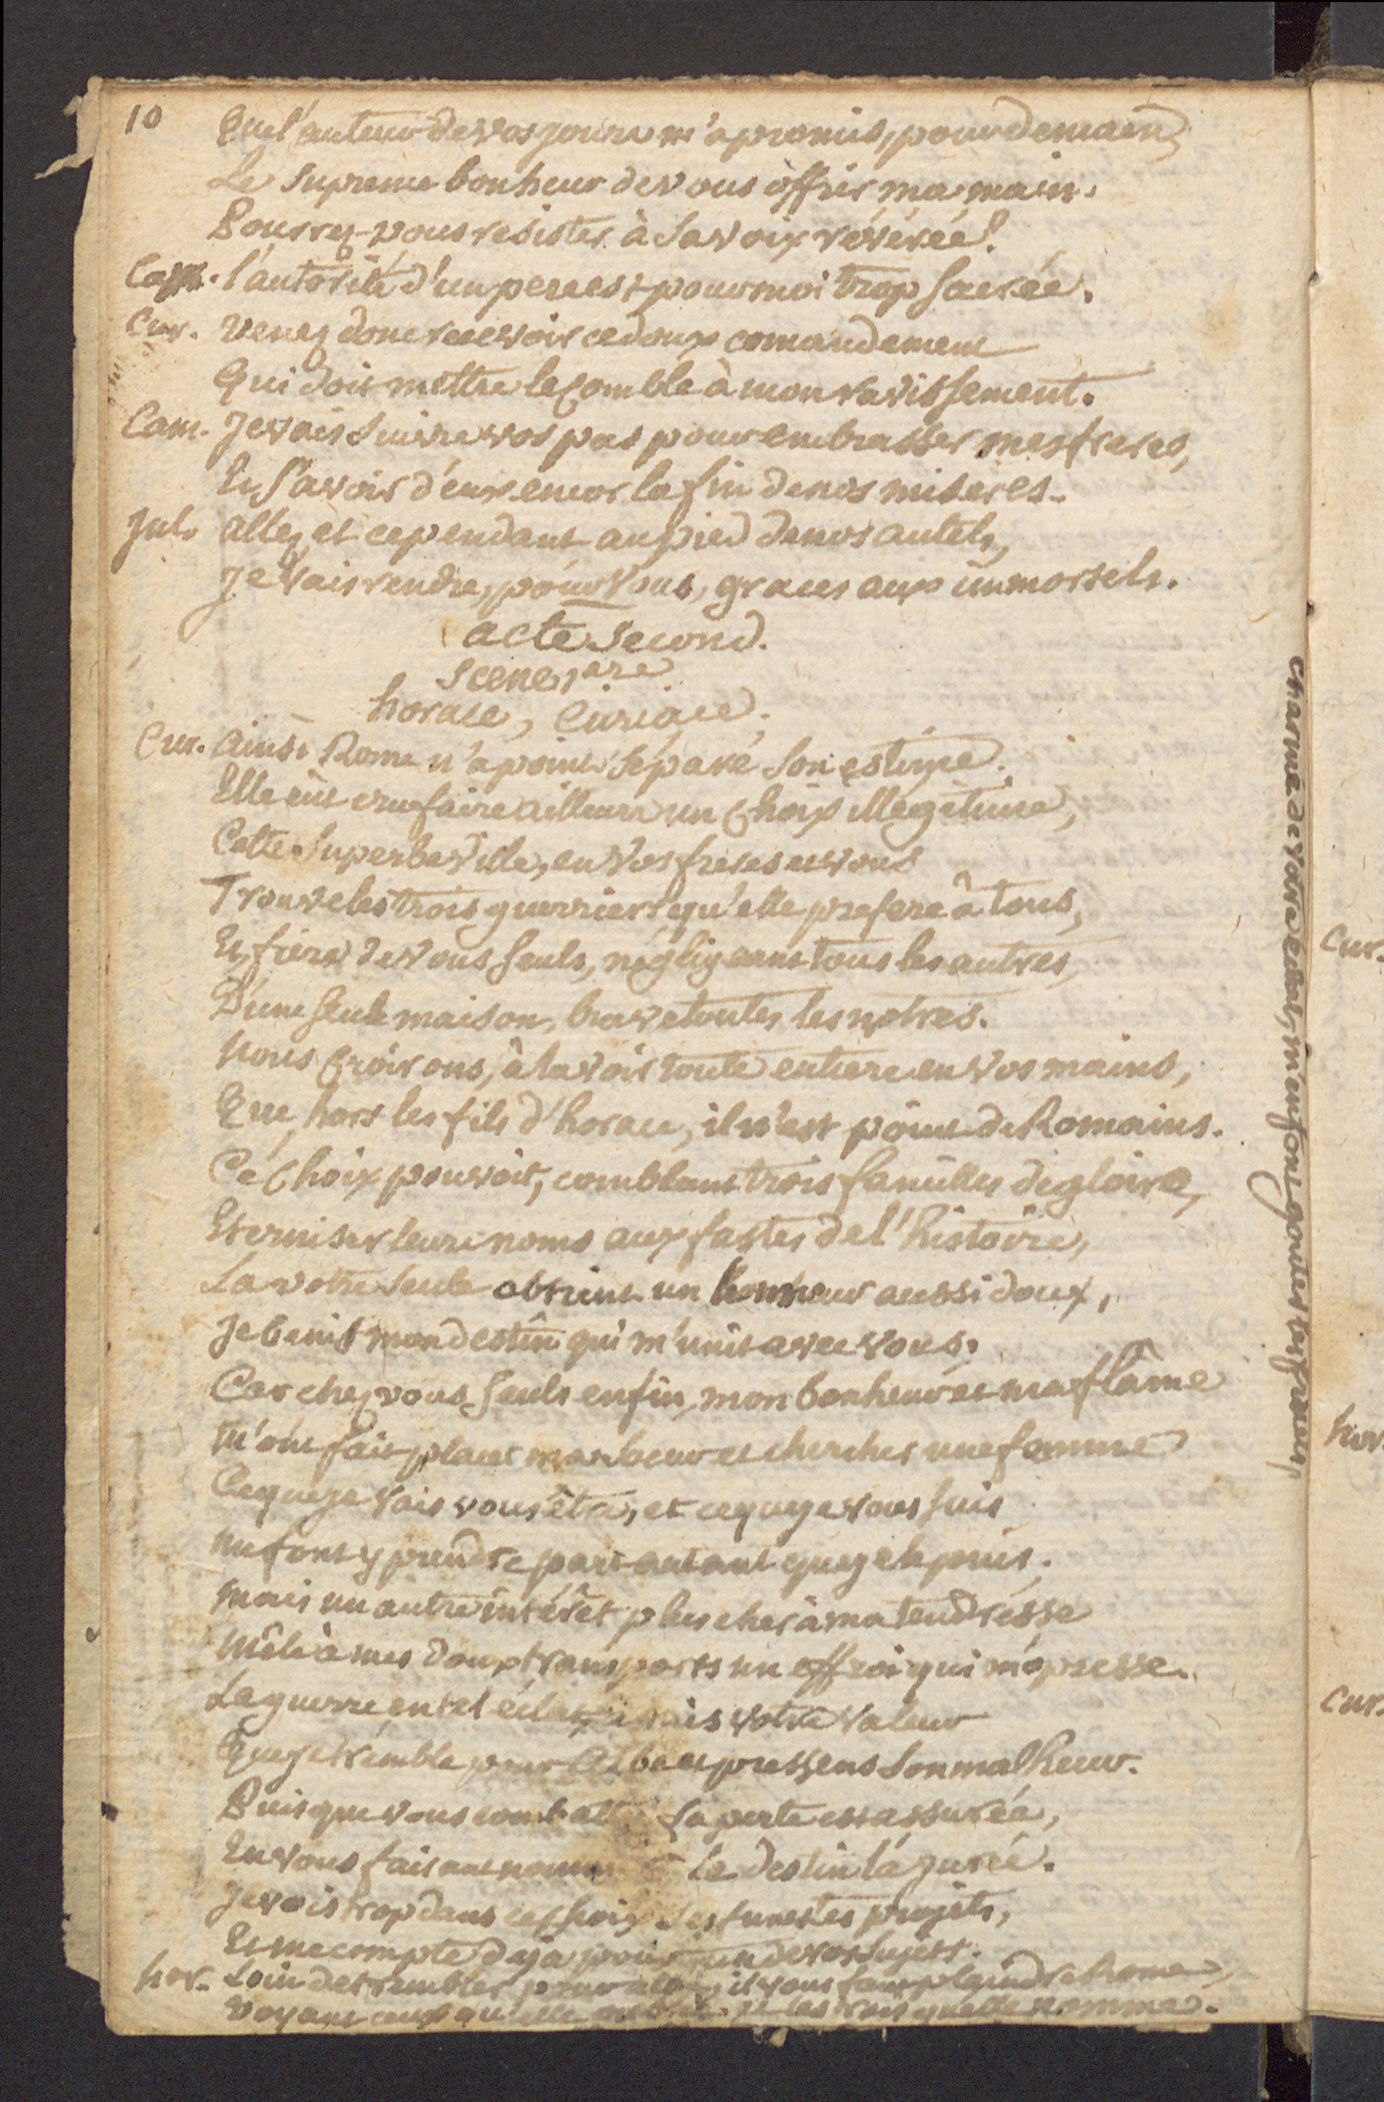 10
Que l'auteur de vos jours m'a promis, pour demain,
Le Supreme bonheur de vous offrir ma main.
Pourrez-vous resister à sa voix révérée?
Cam. l'autorité d'un pere est pour moi trop sacrée.
Cur. venez donc recevoir ce doux comandement
Qui doit mettre le comble à mon ravissement.
Cam. Je vais suivre vos pas pour embrasser mes freres,
Et sçavoir d'eux encor la fin de nos miseres.
Jul. allez et cependant au pied de nos autels,
Je vais rendre, pour vous, graces aux immortels.
acte Second.
scene 1ere
horace, Curiace.
Cur. Ainsi Rome n'a point séparé son estime.
Elle eut cru faire ailleurs un choix illégitime,
Cette Superbe Ville, en vos freres et vous
Trouve les trois guerriers qu'elle prefere à tous,
Et, fiere de vous seuls, négligeant tous les autres,
D'une seule maison, brave toutes les notres.
Nous croirons, à la voir toute entiere en vos mains,
Que, hors les fils d'horace, il n'est point de Romains.
Ce choix pouvoit, comblant trois familles de gloire,
Eterniser leurs noms aux fastes de l'histoire,
La votre seule obtient un honneur aussi doux,
Je benis mon destin qui m'unit avec vous.
Car chez vous seuls enfin, mon bonheur et ma flâme
M'ont fait placer ma soeur et chercher une femme
Ce que je vais vous être, et ce que je vous suis
me font y prendre part autant que je le puis.
Mais un autre intérêt plus cher à ma tendresse
Mêle à mes doux transports un effroi qui m'opresse.
La guerre en tel éclat a mis votre valeur
Que je tremble pour Albe et pressens son malheur.
Puisque vous combattez sa perte est assurée,
En vous faisant nommer le destin l'a jurée.
Je vois trop dans ce choix ses funestes projets,
Et me compte deja pour un de vos sujets.
hor. Loin de trembler pour albe, il vous faut plaindre Rome,
Voyant ceux qu'elle oublie et les trois qu'elle nomme.
charmé de votre éclat, m'en font gouter
Cur.
hor.
Cur.